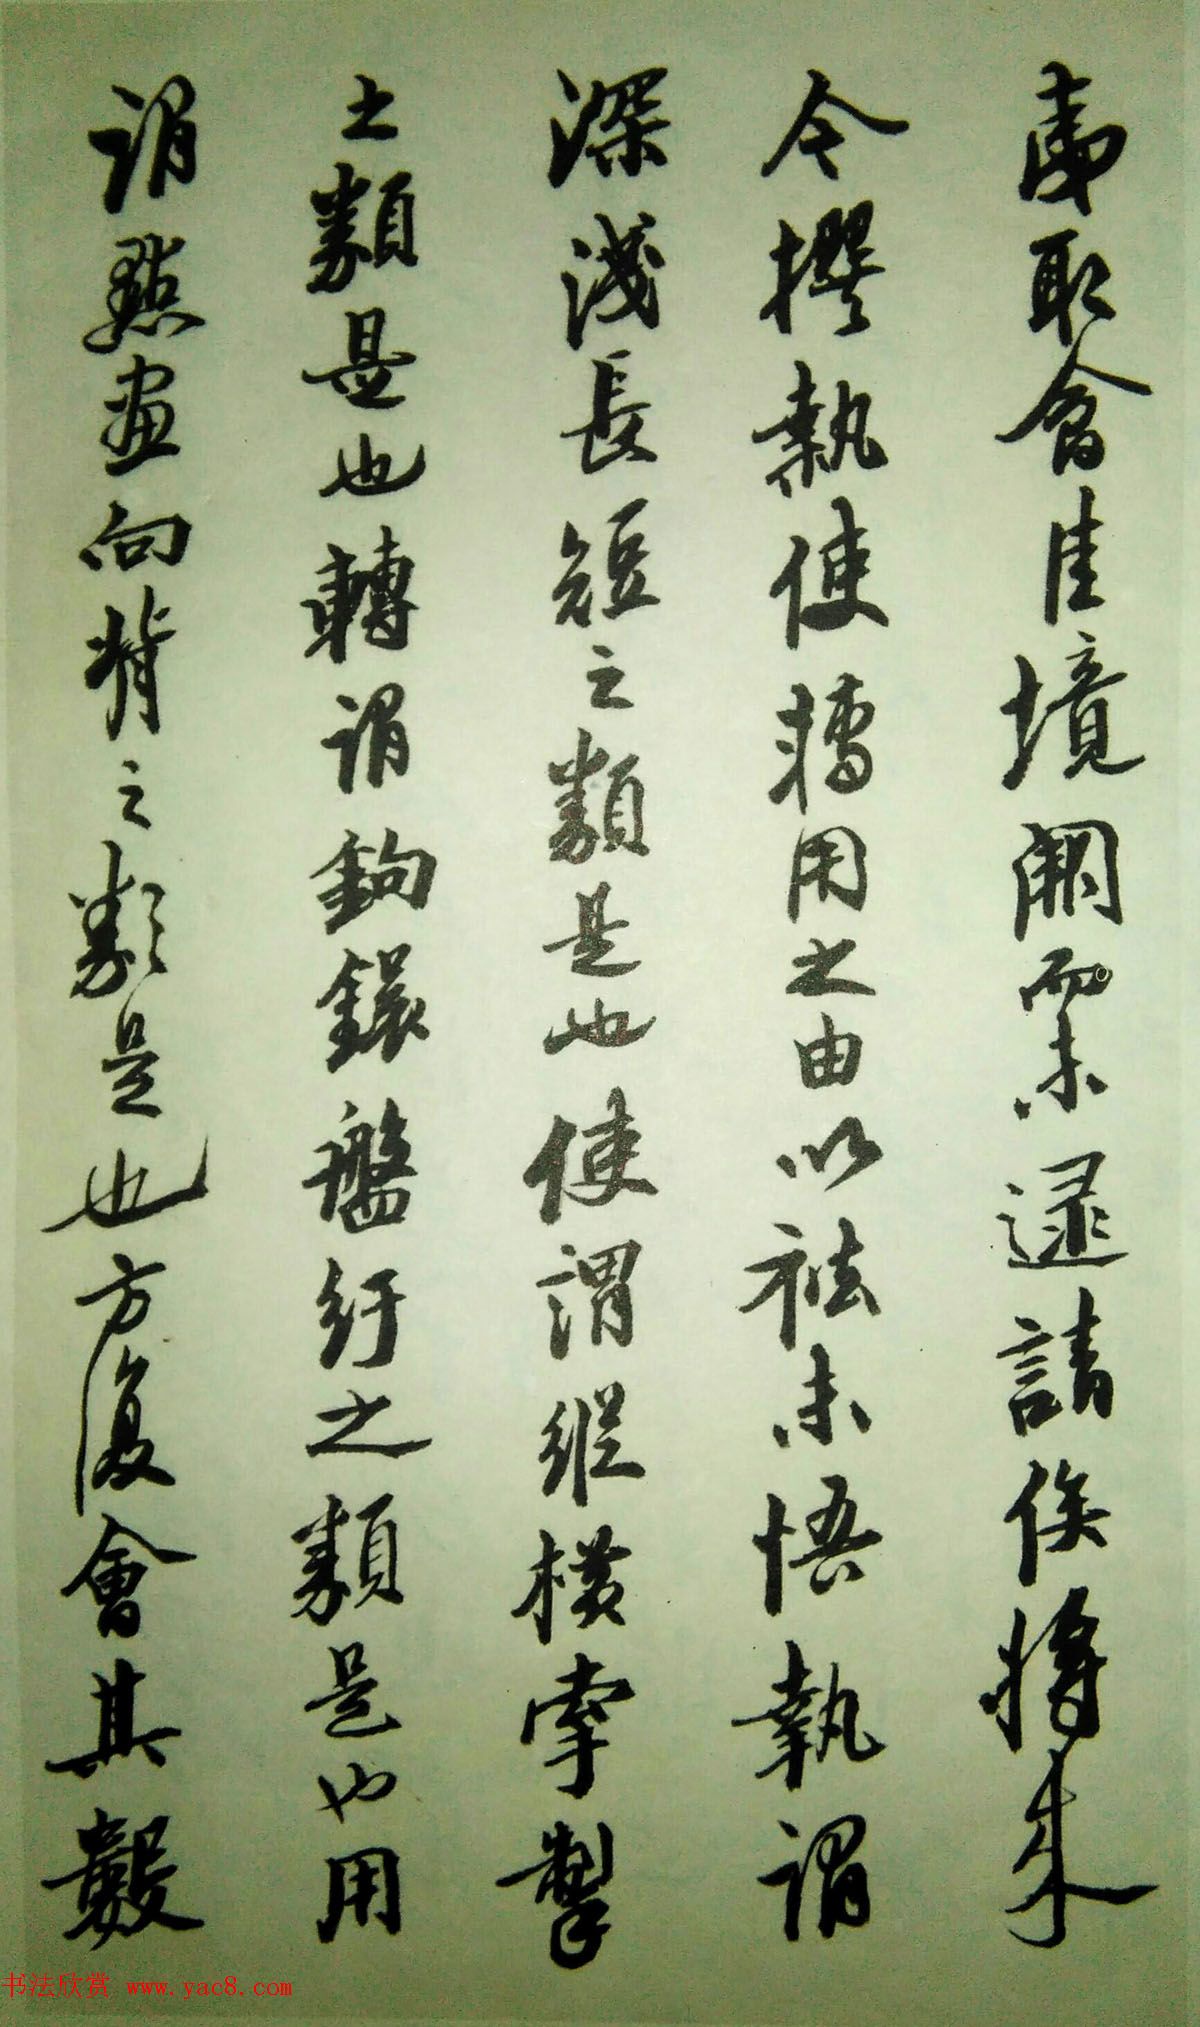 處取會佳境闕而未逮請俟將來
令撰執使轉用之由以祛未悟執謂
深淺長短之類是也使謂縱橫牽掣
之類是也轉謂鉤鐶盤紆之類是也用
謂點畫向背之類是也方復會其數
书法欣赏 www.yac8.com